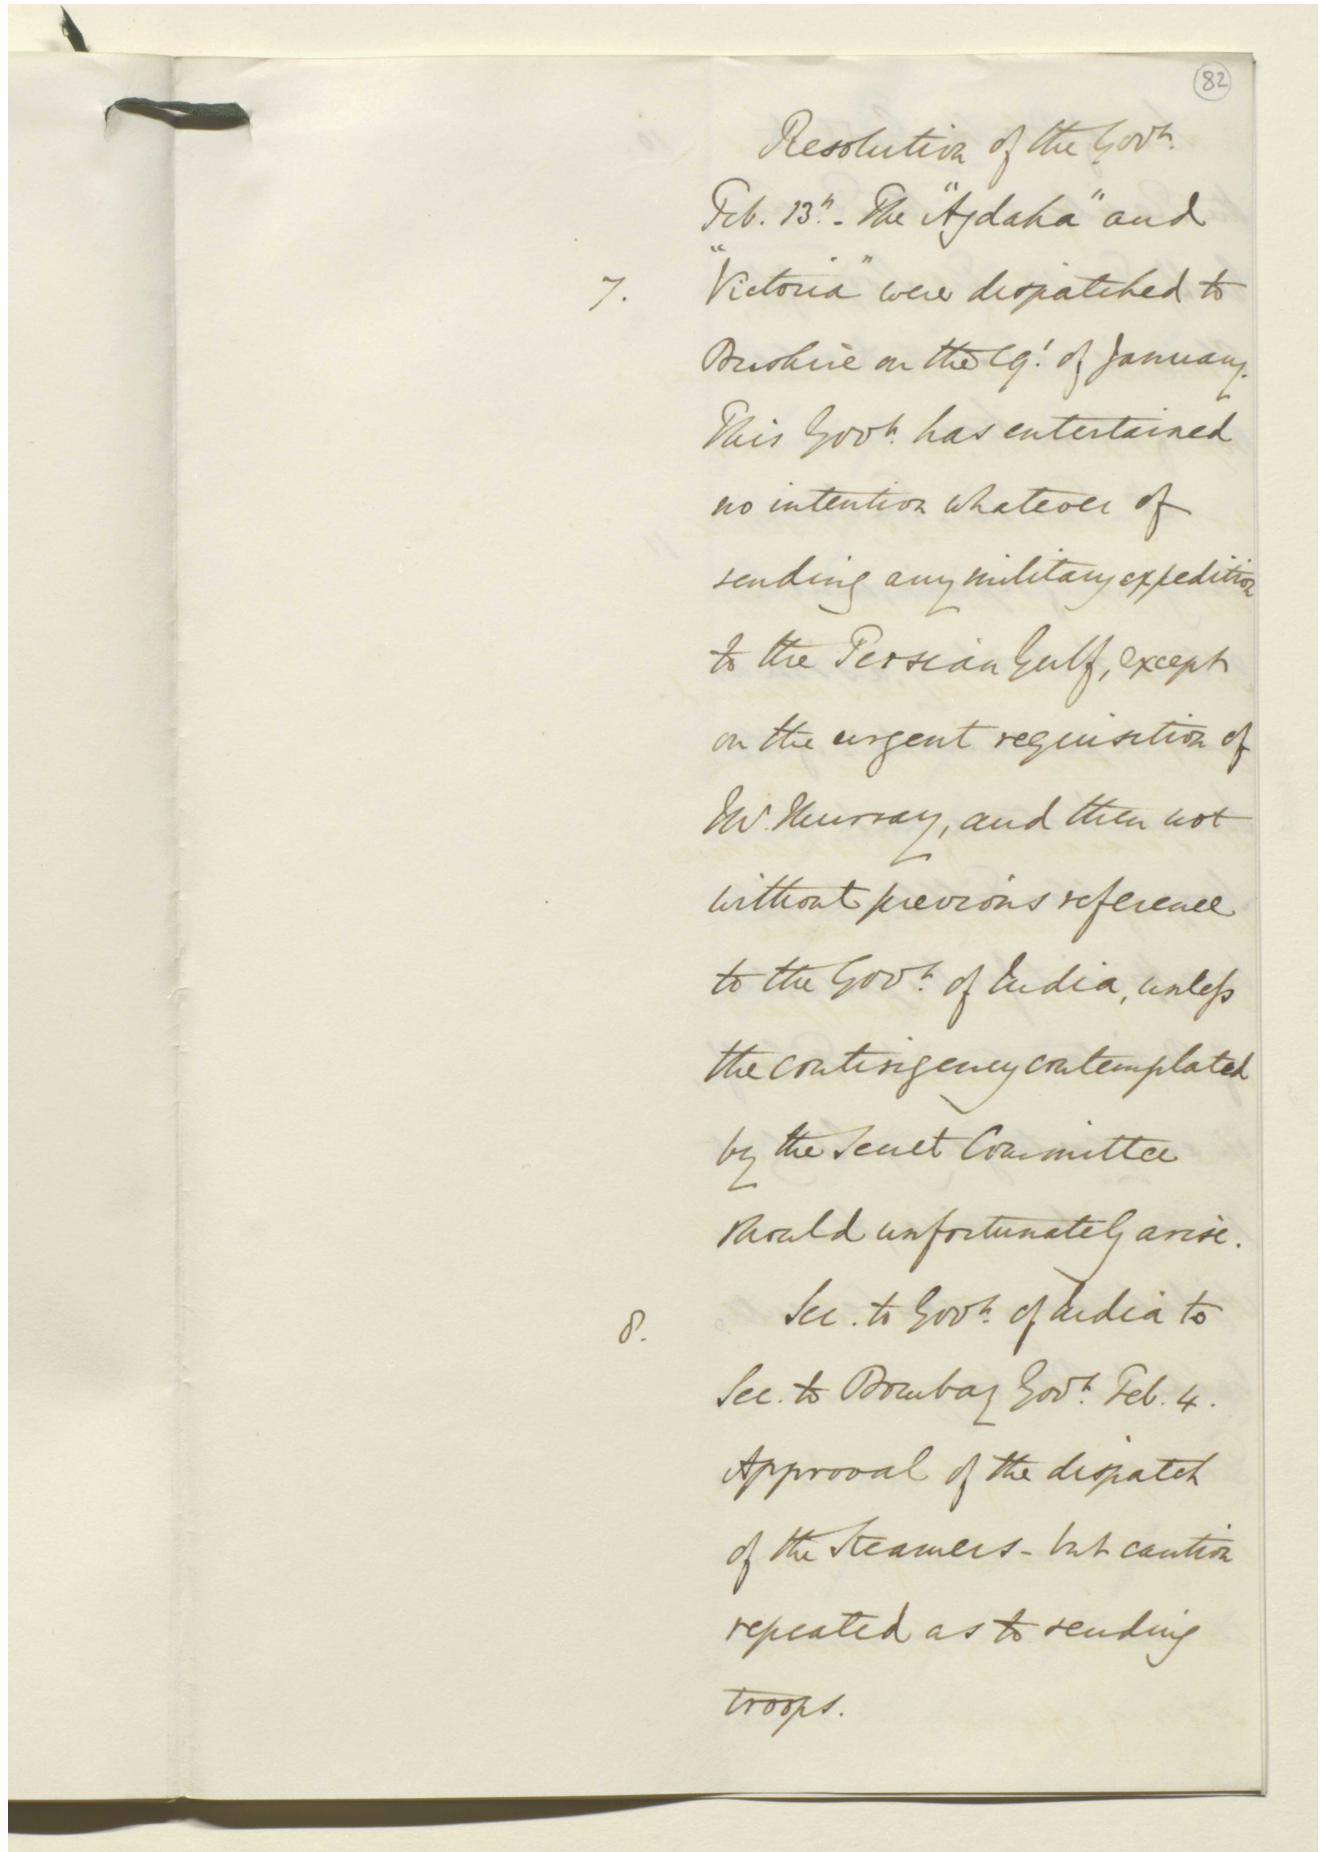 82
Resolution of the Govt.
Feb. 13th. - The "Ajdaha" and
7. "Victoria" were dispatched to
Bushire on the 19t. of January.
This Govt. has entertained
no intention whatever of
sending any military expedition
to the Persian Gulf, except
on the urgent requisition of
Mr. Murray, and then not
without previous reference
to the Govt. of India, unless
the contingency contemplated
by the Secret Committee
should unfortunately arise.
8. Sec. to Govt. of India to
Sec. to Bombay Govt. Feb. 4.
Approval of the dispatch
of the Steamers - but caution
repeated as to sending
troops.